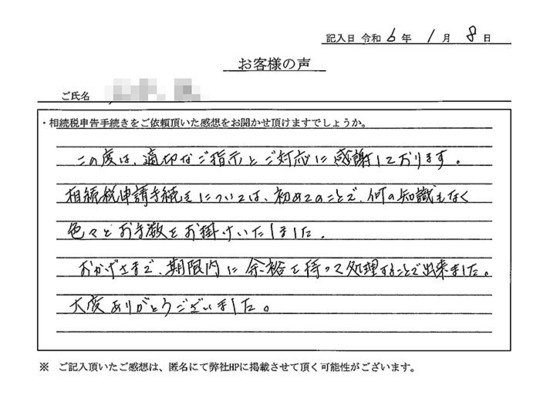 記入日 令和 6 年 1 月 8 日
お客様の声
ご氏名
・相続税申告手続きをご依頼頂いた感想をお聞かせ頂けますでしょうか。
この度は、適切なご指示とご対応に感謝しております。
相続税申請手続きについては、初めてのことで、何の知識もなく
色々とお手数をお掛けいたしました。
おかげさまで、期限内に余裕を持って処理することが出来ました。
大変ありがとうございました。
※ ご記入頂いたご感想は、匿名にて弊社HPに掲載させて頂く可能性がございます。